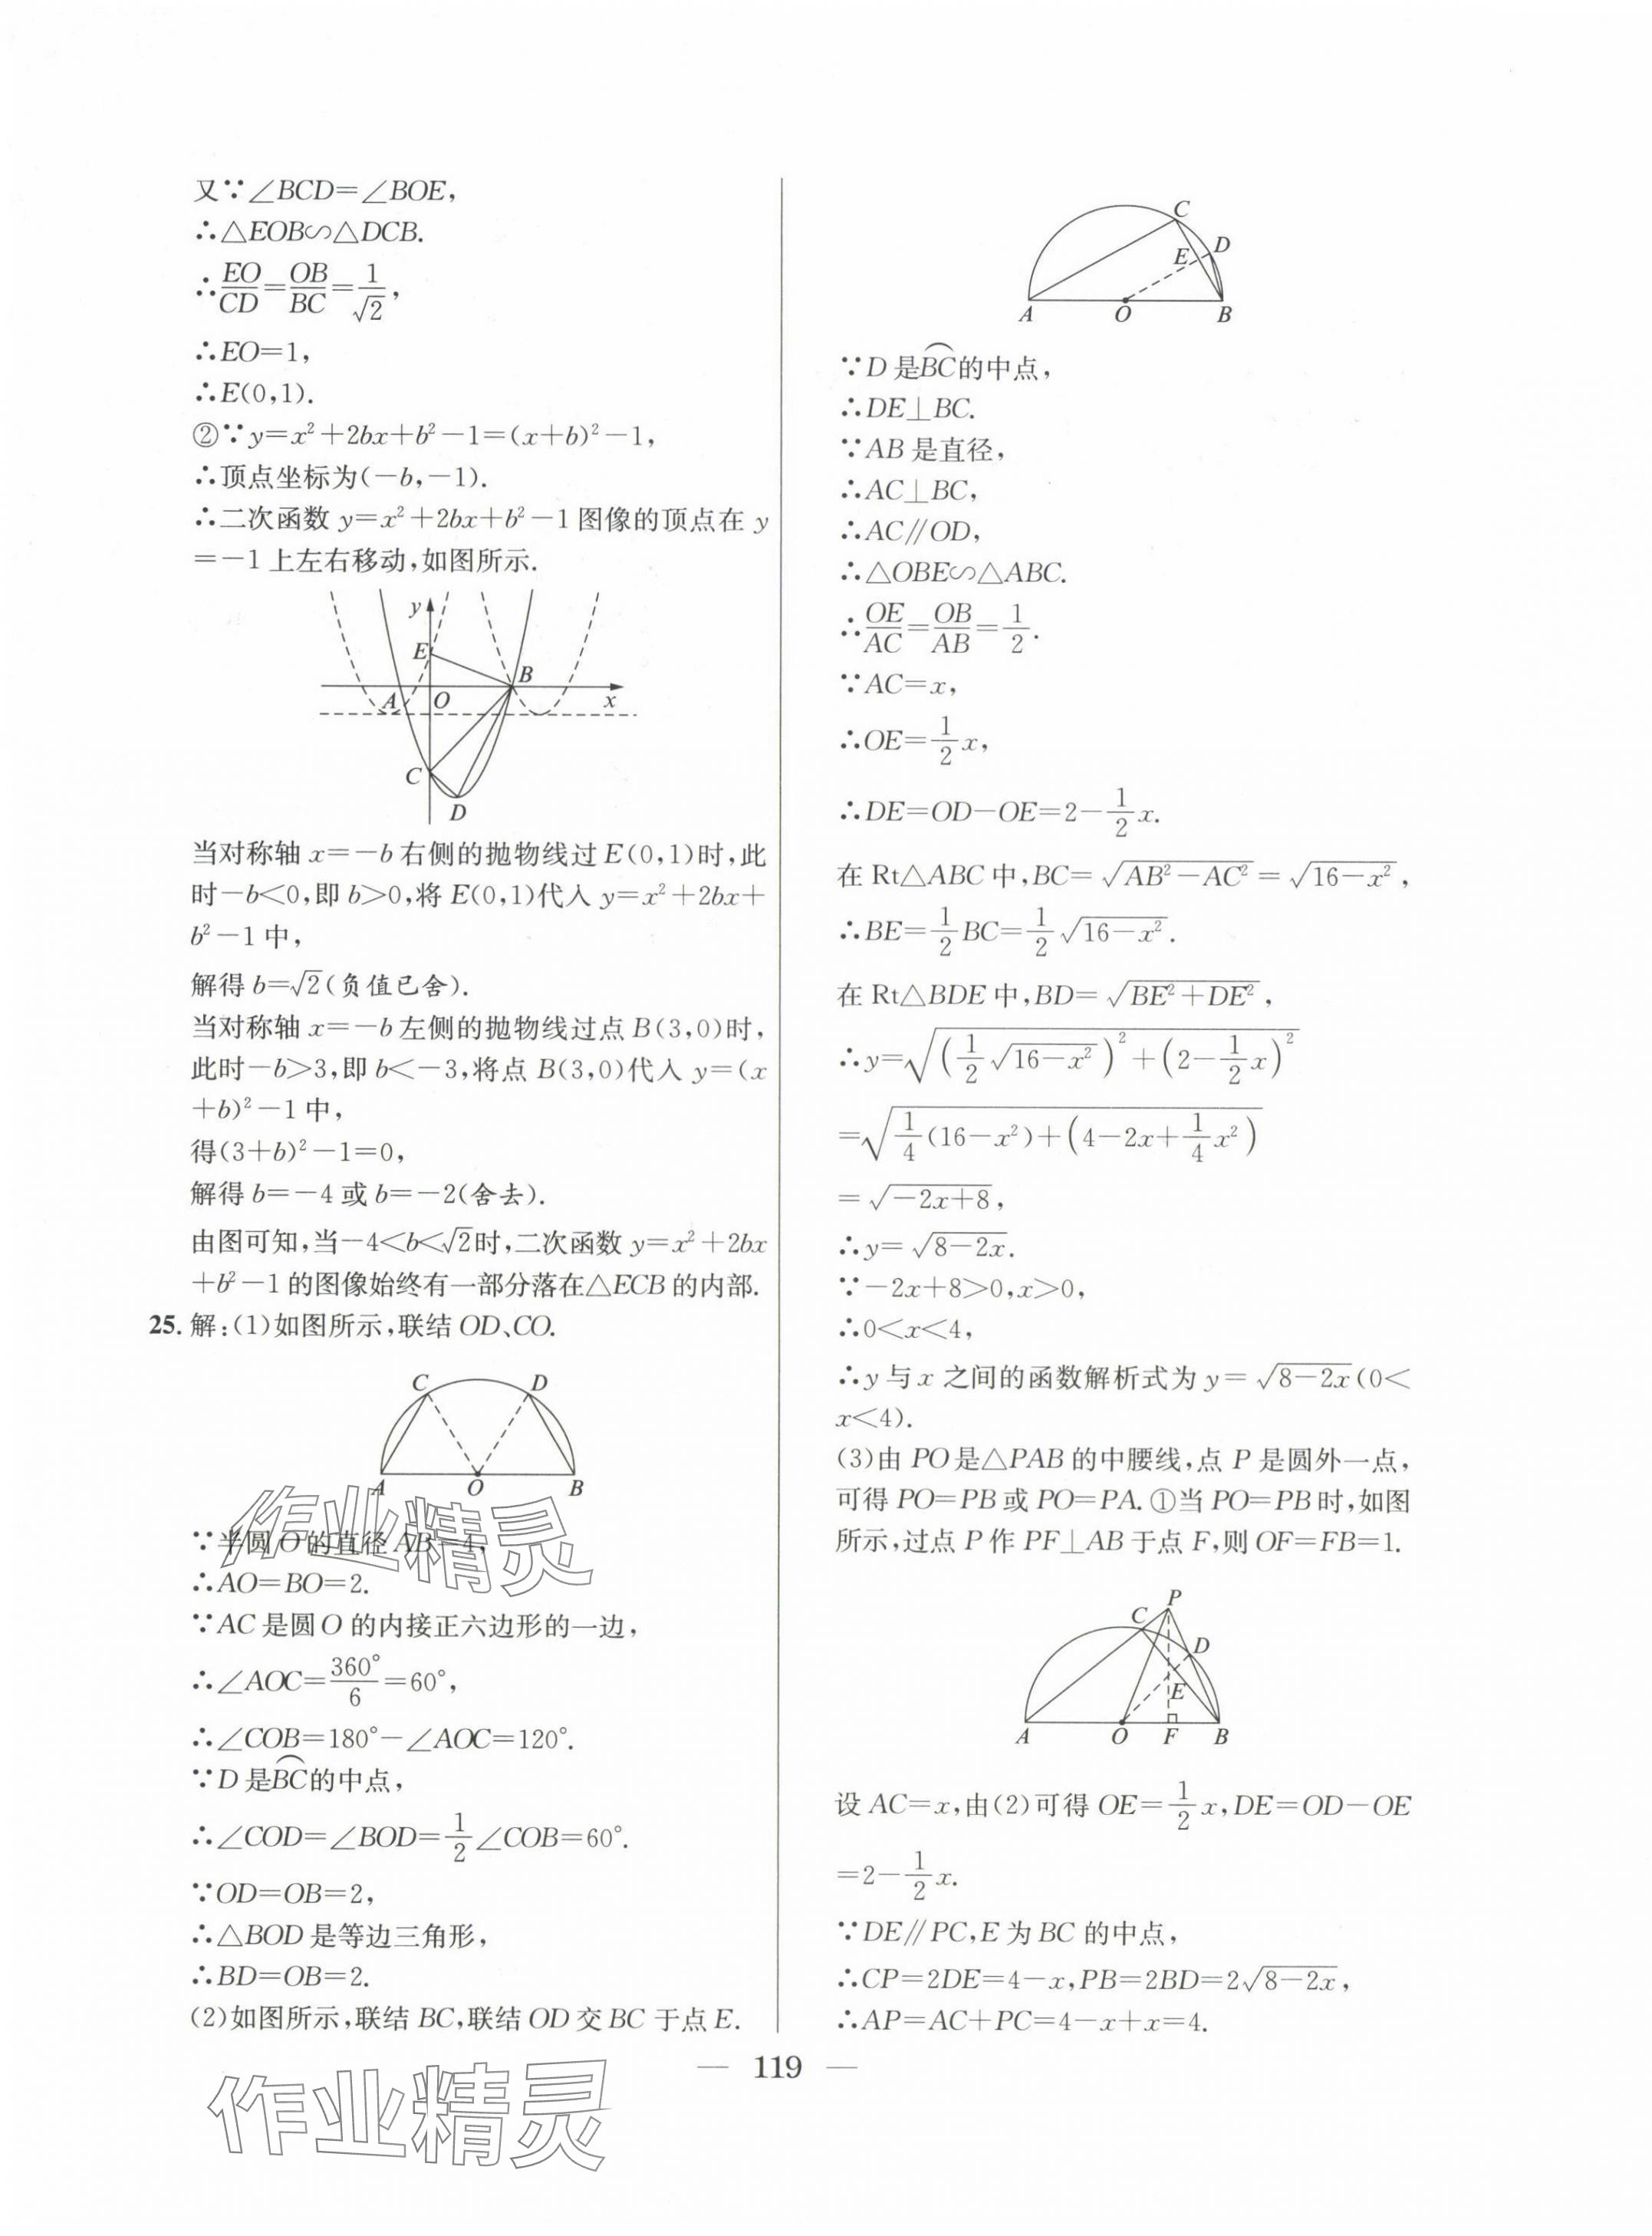 又∵∠BCD=∠BOE,
∴△EOB∽△DCB.
∴EO/CD=OB/BC=1/√2,
∴EO=1,
∴E(0,1).
②∵y=x²+2bx+b²-1=(x+b)²-1,
∴顶点坐标为(-b,-1).
∴二次函数 y=x²+2bx+b²-1图像的顶点在 y
=-1上左右移动,如图所示.
y
E
B
A
O
x
C
D
当对称轴 x=-b右侧的抛物线过E(0,1)时,此
时-b<0,即b>0,将E(0,1)代入 y=x²+2bx+
b²-1中,
解得b=√2(负值已舍).
当对称轴x=-b左侧的抛物线过点B(3,0)时,
此时-b>3,即b<-3,将点B(3,0)代入 y=(x
+b)²-1中,
得(3+b)²-1=0,
解得b=-4或b=-2(舍去).
由图可知,当-4<b<√2时,二次函数 y=x²+2bx
+b²-1的图像始终有一部分落在△ECB的内部.
25. 解:(1)如图所示,联结OD、CO.
C D
A O B
∵半圆O的直径AB=4,
∴AO=BO=2.
∵AC是圆O的内接正六边形的一边,
∴∠AOC=360°/6=60°,
∴∠COB=180°-∠AOC=120°.
∵D是⌒BC的中点,
∴∠COD=∠BOD=1/2∠COB=60°.
∵OD=OB=2,
∴△BOD是等边三角形,
∴BD=OB=2.
(2)如图所示,联结BC,联结OD交BC于点E.
C
D
E
A O B
∵D是⌒BC的中点,
∴DE⊥BC.
∵AB是直径,
∴AC⊥BC,
∴AC∥OD,
∴△OBE∽△ABC.
∴OE/AC=OB/AB=1/2.
∵AC=x,
∴OE=1/2x,
∴DE=OD-OE=2-1/2x.
在Rt△ABC中,BC=√(AB²-AC²)=√(16-x²),
∴BE=1/2BC=1/2√(16-x²).
在Rt△BDE中,BD=√(BE²+DE²),
∴y=√((1/2√(16-x²))²+(2-1/2x)²)
=√(1/4(16-x²)+(4-2x+1/4x²))
=√(-2x+8),
∴y=√(8-2x).
∵-2x+8>0,x>0,
∴0<x<4,
∴y与x之间的函数解析式为y=√(8-2x)(0<
x<4).
(3)由PO是△PAB的中腰线,点P是圆外一点,
可得PO=PB或PO=PA.①当PO=PB时,如图
所示,过点P作PF⊥AB于点F,则OF=FB=1.
P
C
D
E
A O F B
设AC=x,由(2)可得OE=1/2x,DE=OD-OE
=2-1/2x.
∵DE∥PC,E为BC的中点,
∴CP=2DE=4-x,PB=2BD=2√(8-2x),
∴AP=AC+PC=4-x+x=4.
— 119 —
作业精灵
作业精灵